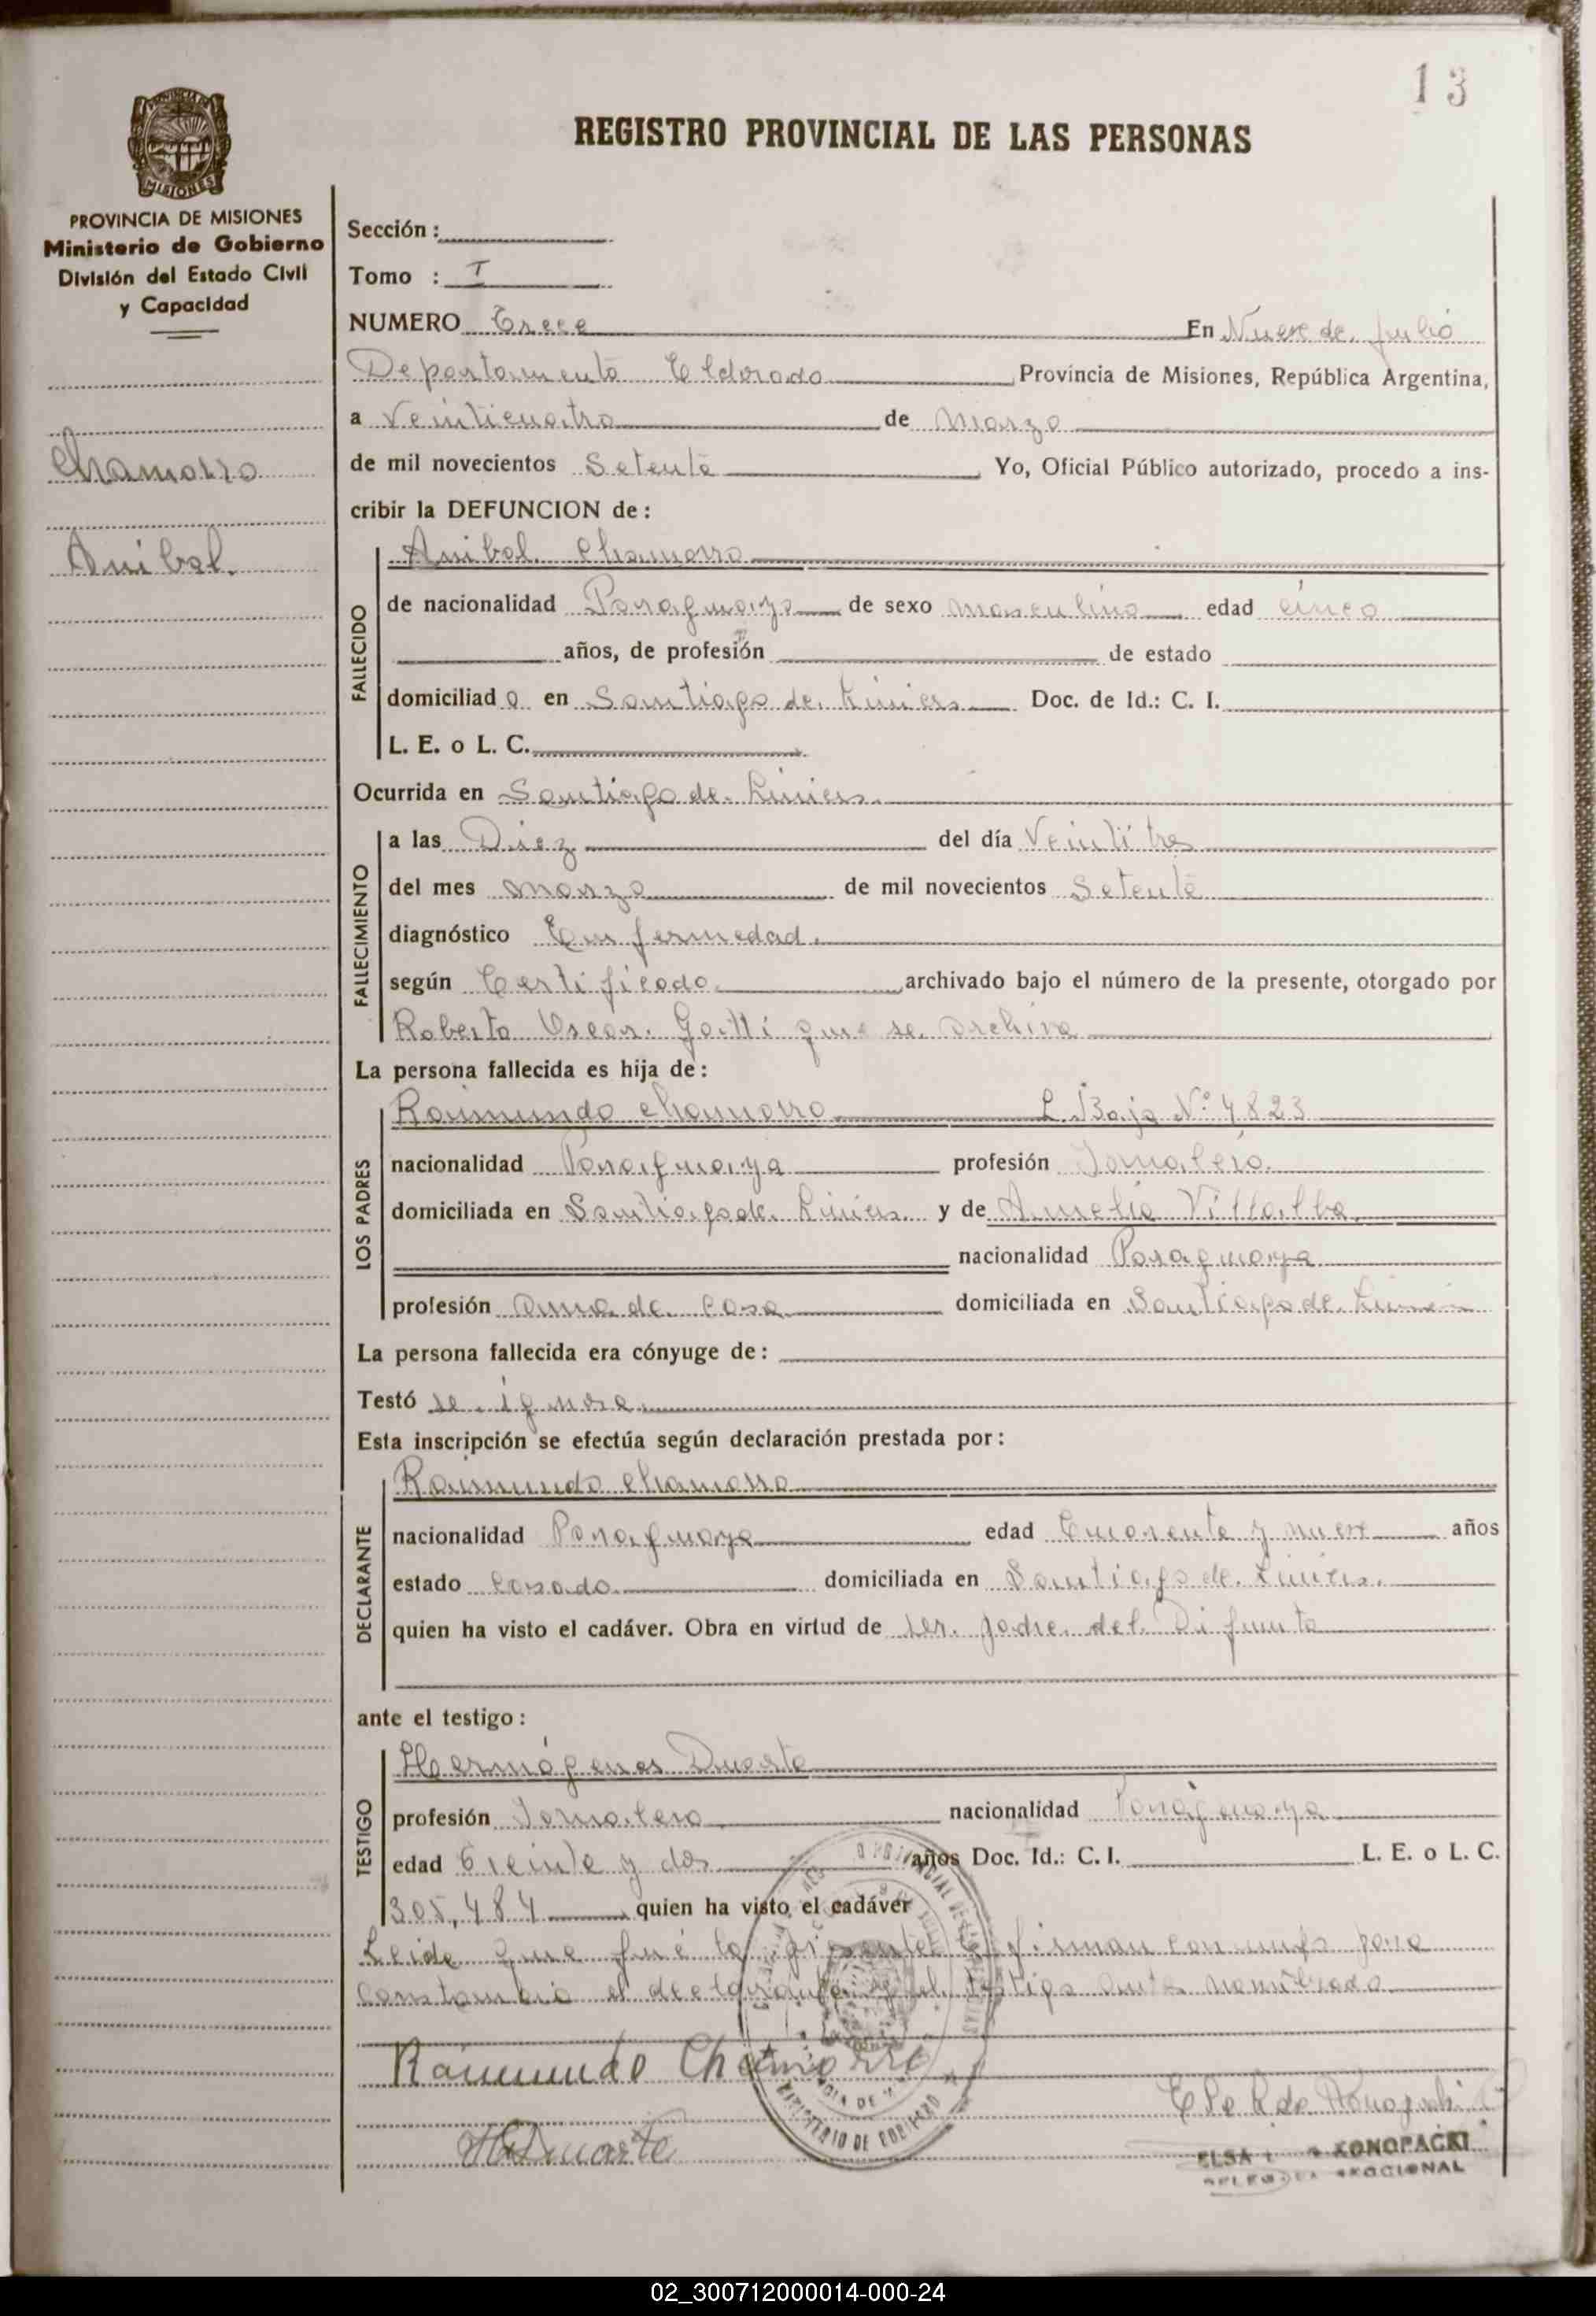 13
REGISTRO PROVINCIAL DE LAS PERSONAS
PROVINCIA DE MISIONES
Ministerio de Gobierno
División del Estado Civil
y Capacidad
Chamorro
Anibal.
Sección :
Tomo : I
NUMERO Trece En Nueve de Julio
Departamento Eldorado Provincia de Misiones, República Argentina,
a Veinticuatro de Marzo
de mil novecientos Setenta Yo, Oficial Público autorizado, procedo a ins-
cribir la DEFUNCION de :
Anibal Chamorro
FALLECIDO
de nacionalidad Paraguaya de sexo masculino edad cinco
años, de profesión de estado
domiciliad o en Santiago de Liniers Doc. de Id.: C. I.
L. E. o L. C.
Ocurrida en Santiago de Liniers.
FALLECIMIENTO
a las Diez del día Veintitres
del mes marzo de mil novecientos Setenta
diagnóstico Enfermedad.
según Certificado archivado bajo el número de la presente, otorgado por
Roberto Oscar Gatti que se archiva
La persona fallecida es hija de :
LOS PADRES
Raimundo Chamorro L. Baja Nº 4823
nacionalidad Paraguaya profesión Jornalero
domiciliada en Santiago de Liniers y de Amelia Villalba
nacionalidad Paraguaya
profesión ama de casa domiciliada en Santiago de Liniers
La persona fallecida era cónyuge de :
Testó se ignora
Esta inscripción se efectúa según declaración prestada por :
Raimundo Chamorro
DECLARANTE
nacionalidad Paraguaya edad Cuarenta y nueve años
estado Casado domiciliada en Santiago de Liniers.
quien ha visto el cadáver. Obra en virtud de ser padre del Difunto
ante el testigo :
Hermógenes Duarte
TESTIGO
profesión Jornalero nacionalidad Paraguaya
edad Treinta y dos años Doc. Id.: C. I. L. E. o L. C.
305,484 quien ha visto el cadáver
Leida que fué la presente firman conmigo para
constancia el declarante y el testigo antes nombrado
Raimundo Chamorro
HDuarte
ELSA KONOPACKI
MINISTERIO DE GOBIERNO
02_300712000014-000-24